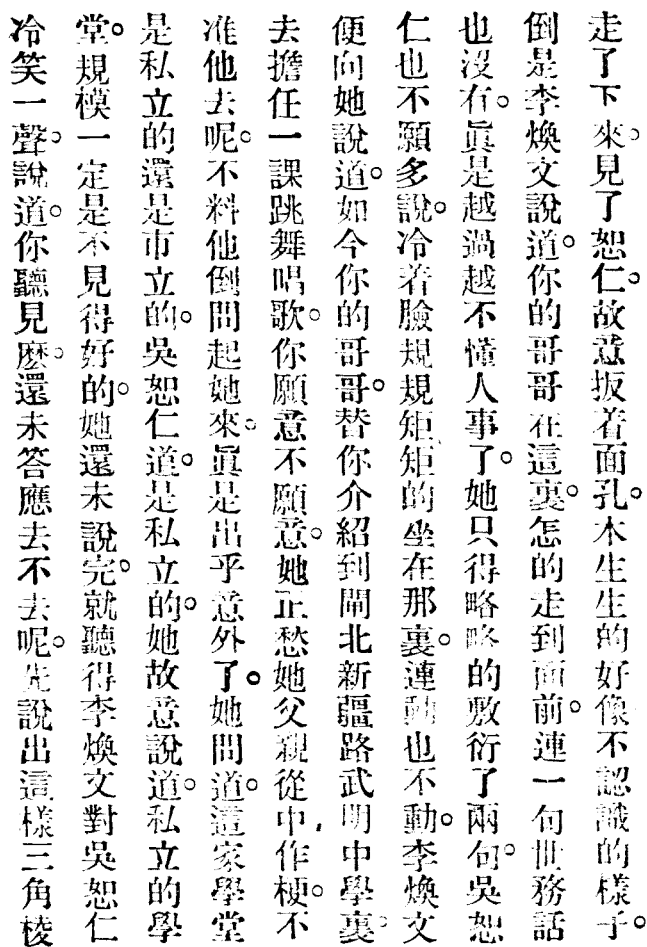 走了下來。見了恕仁。故意扳着面孔。木生生的好像不認識的樣子。
倒是李煥文說道。你的哥哥在這裏。怎的走到面前。連一句世務話
也沒有。眞是越過越不懂人事了。她只得略略的敷衍了兩句。吳恕
仁也不願多說。冷着臉規規矩矩的坐在那裏。連動也不動。李煥文
便向她說道。如今你的哥哥。替你介紹到閘北新疆路武明中學裏。
去擔任一課跳舞唱歌。你願意不願意。她正愁她父親從中作梗。不
准他去呢。不料他倒問起她來。眞是出乎意外了。她問道。這家學堂
是私立的還是市立的。吳恕仁道。是私立的。她故意說道。私立的學
堂。規模一定是不見得好的。她還未說完。就聽得李煥文對吳恕仁
冷笑一聲。說道。你聽見麽。還未答應去不去呢。先說出這樣三角棱